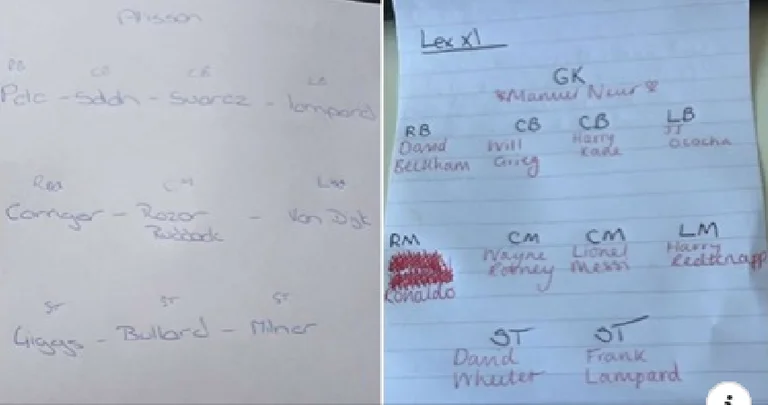 Alisson
RB CB CB LB
Pele - Sddn - Suarez - Lampard
RM CM LM
Carragher - Razor - Van Dijk
Ruddock
ST ST ST
Giggs - Bullard - Milner
Lex XI
GK
*Manuel Neur*
RB CB CB LB
David Will Harry JJ
Beckham Grieg Kade Ococha
RM CM CM LM
Wayne Lionel Harry
Ronaldo Rooney Messi Redknapp
ST ST
David Frank
Wheeter Lampard